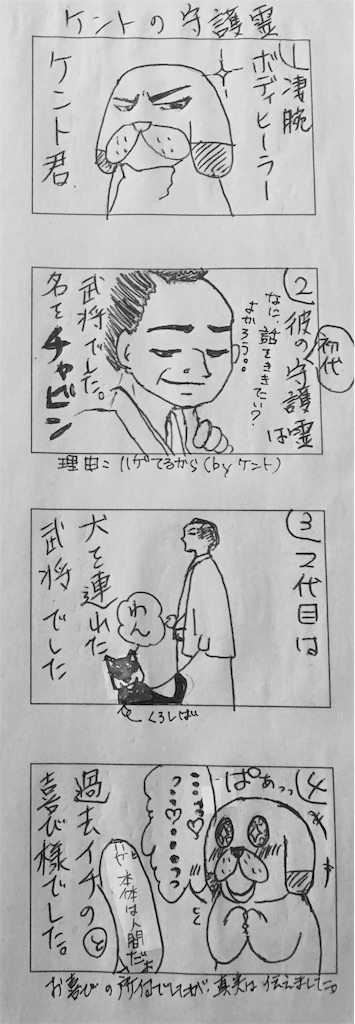 ケントの守護霊
1 凄腕
ボディヒーラー
ケント君
2 彼の守護霊は
初代
なに、話をききたい?
よかろう。
武将でした。
名をチャビン
理由:ハゲてるから(by ケント)
3 2代目は
犬を連れた
武将でした
わん
くろしば
4
ぱあっっ
過去イチの
喜び様でした。
本体は人間だよ
お喜びの所付でしたが、真実は伝えました。